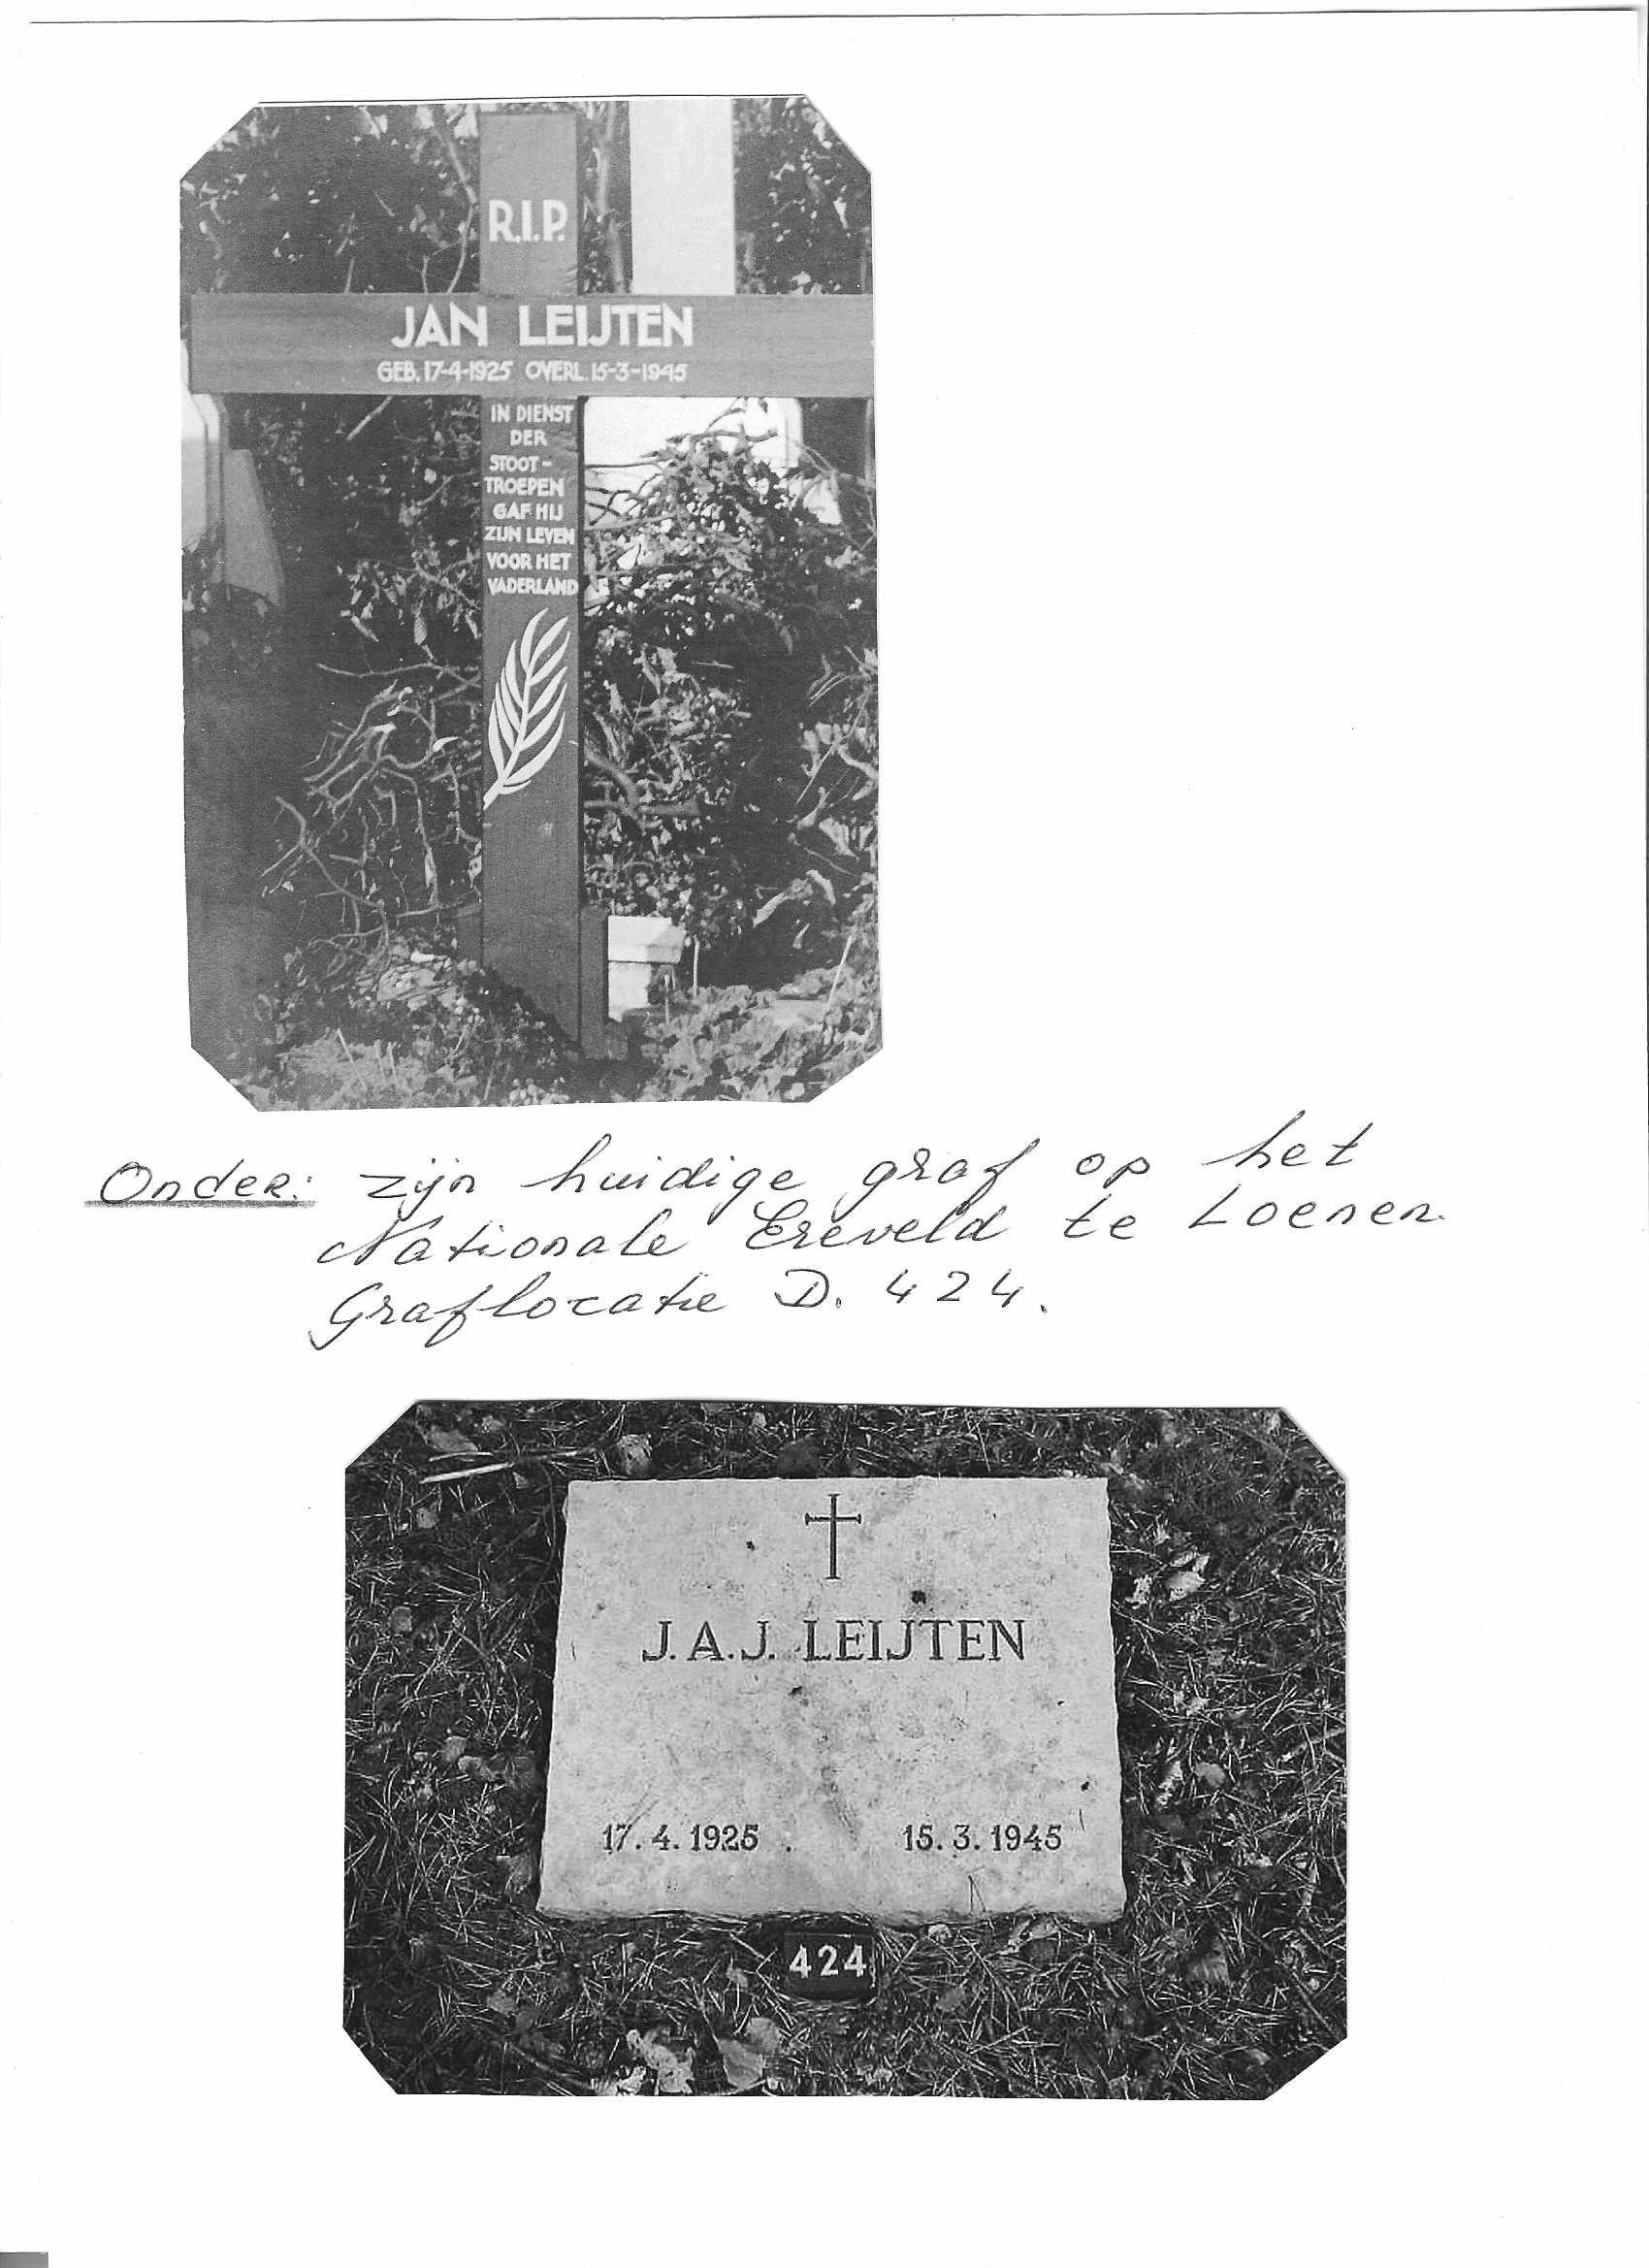 R.I.P.
JAN LEIJTEN
GEB. 17-4-1925 OVERL. 15-3-1945
IN DIENST
DER
STOOT-
TROEPEN
GAF HIJ
ZIJN LEVEN
VOOR HET
VADERLAND
Onder: zijn huidige graf op het
Nationale Ereveld te Loenen.
Graflocatie D. 424.
J.A.J. LEIJTEN
17.4.1925 15.3.1945
424